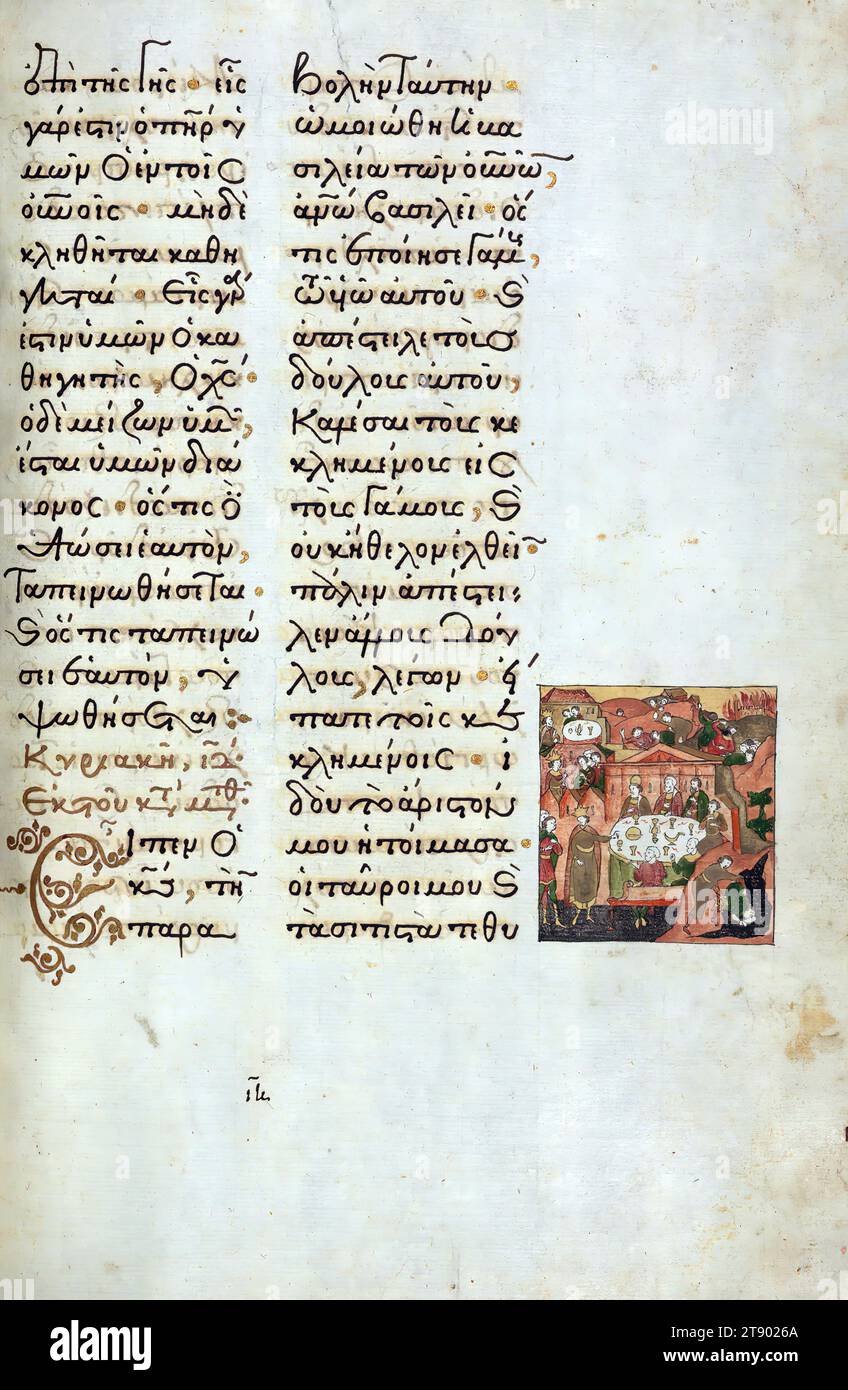 ἐπὶ τῆς γῆς · εἷς
γάρ ἐστιν ὁ πη̅ρ ὑ
μῶν ὁ ἐν τοῖς
οὐ̅νοῖς · μὴ δὲ
κληθῆται καθη
γηταί · εἷς γὰρ
ἐστιν ὑμῶν ὁ κα
θηγητὴς, ὁ χ̅ς ·
ὁ δὲ μείζων ὑμῶν,
ἔσται ὑμῶν διά
κονος · ὅς τις ὑ
ψώσει ἑαυτὸν,
ταπεινωθήσεται ·
ϗ ὅς τις ταπεινώ
σει ἑαυτὸν, ὑ
ψωθήσεται :
Κυριακῆ, ιδ
Ἐκ τοῦ κτ μτθ
Εἶπεν ὁ
κς̅, τὴν
παρα
βολὴν ταύτην ·
ὡμοιώθη ἡ βα
σιλεία τῶν οὐ̅νῶ̅,
ἀν̅ω̅ βασιλεῖ · ὅς
τις ἐποίησε γάμους,
τῶ υἱῶ αὐτοῦ · ϗ
ἀπέστειλε τοὺς
δούλοις αὐτοῦ,
καλέσαι τοὺς κε
κλημένοις εἰς
τοὺς γάμοις, ϗ
οὐκ ἤθελον ἐλθεῖν ·
πάλιν ἀπέστει
λεν ἄλλοις δού
λοις, λέγων · εἴ
πατε τοῖς κε
κλημένοις · ἰ
δοὺ τὸ ἄριστόν
μου ἡτοίμασα ·
οἱ ταῦροι μου ϗ
τὰ σιτιστὰ τεθυ
alamy
Image ID: 2T9026A
www.alamy.com